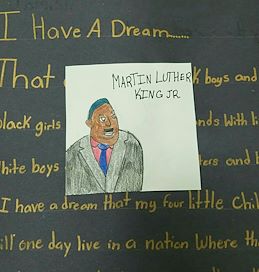 I Have A Dream......
That
MARTIN LUTHER
KING JR
k boys and
black girls
nds with li
white boys
ers and b
I have a dream that my four little Chil
ill one day live in a nation where th